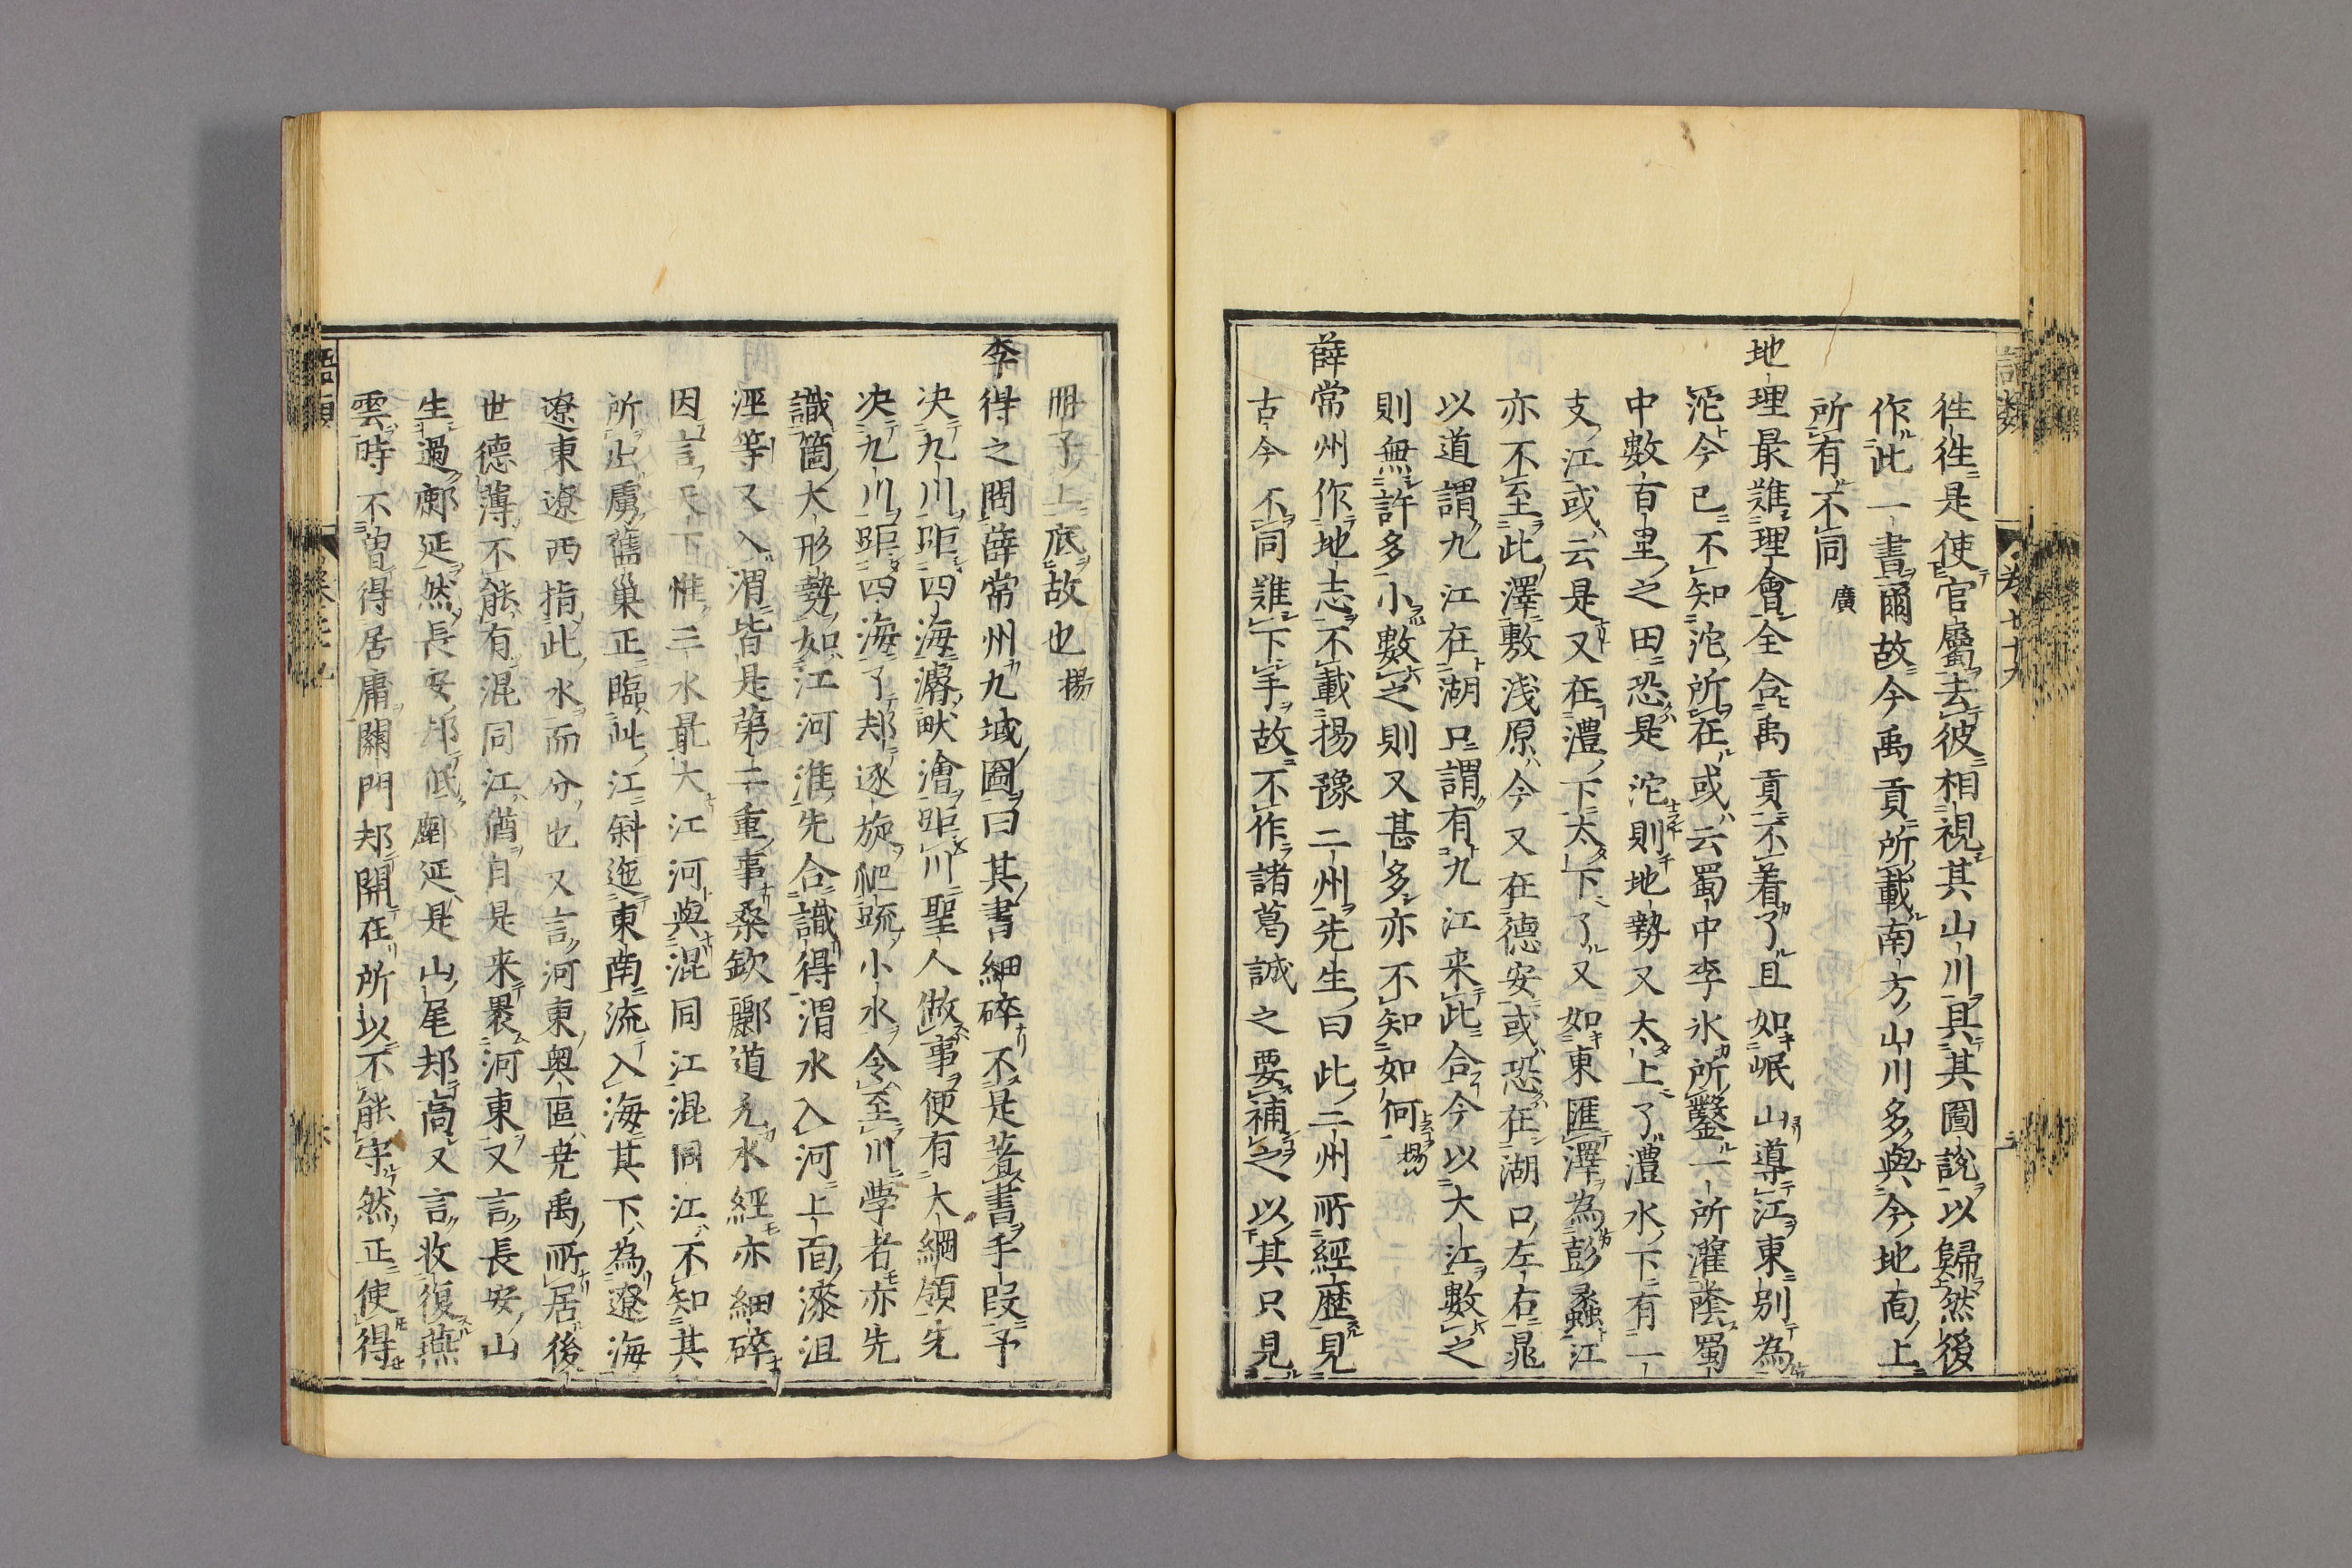 徃徃是使官屬去彼相視其山川具其圖說以歸然後
作此一書爾故今禹貢所載南方山川多與今地面上
所有不同 廣
地理最難理會全合禹貢不着了且如岷山導江東別為
沱今已不知沱所在或云蜀中李氷所鑿一所灌蔭蜀
中數百里之田恐是沱則地勢又太上了澧水下有一
支江或云是又在澧下太下了又如東匯澤為彭蠡江
亦不至此澤敷浅原今又在德安或恐在湖口左右晁
以道謂九江在湖口謂有九江来此合今以大江數之
則無許多小數之則又甚多亦不知如何 揚
薛常州作地志不載揚豫二州先生曰此二州所經歷見
古今不同難下手故不作諸葛誠之要補之以其只見
冊子上底故也 揚
李得之問薛常州九域圖曰其書細碎不是著書手段予
决九川距四海濬畎澮距川聖人做事便有大綱領先
决九川距四海了却逐旋爬疏小水令至川學者亦先
識箇大形勢如江河淮先合識得渭水入河上面漆沮
涇等又入渭皆是第二重事桑欽酈道元水經亦細碎
因言天下惟三水最大江河與混同江混同江不知其
所出虜舊巢正臨此江斜迤東南流入海其下為遼海
遼東遼西指此水而分也又言河東奥區尭禹所居後
世德薄不能有混同江猶自是来褁河東又言長安山
生過鄜延然長安却低鄜延是山尾却高又言收復燕
雲時不曽得居庸關門却開在所以不能守然正使得